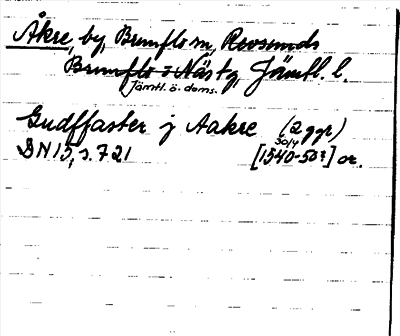 Åkre, by, Brunflo sn, Revsunds
Brunflo o Näs tg, Jämtl. l.
Jämtl. ö. doms.
Gudffaster j Aakre (2 ggr)
30/4
DN 15, s. 721 [1540-50?] or.